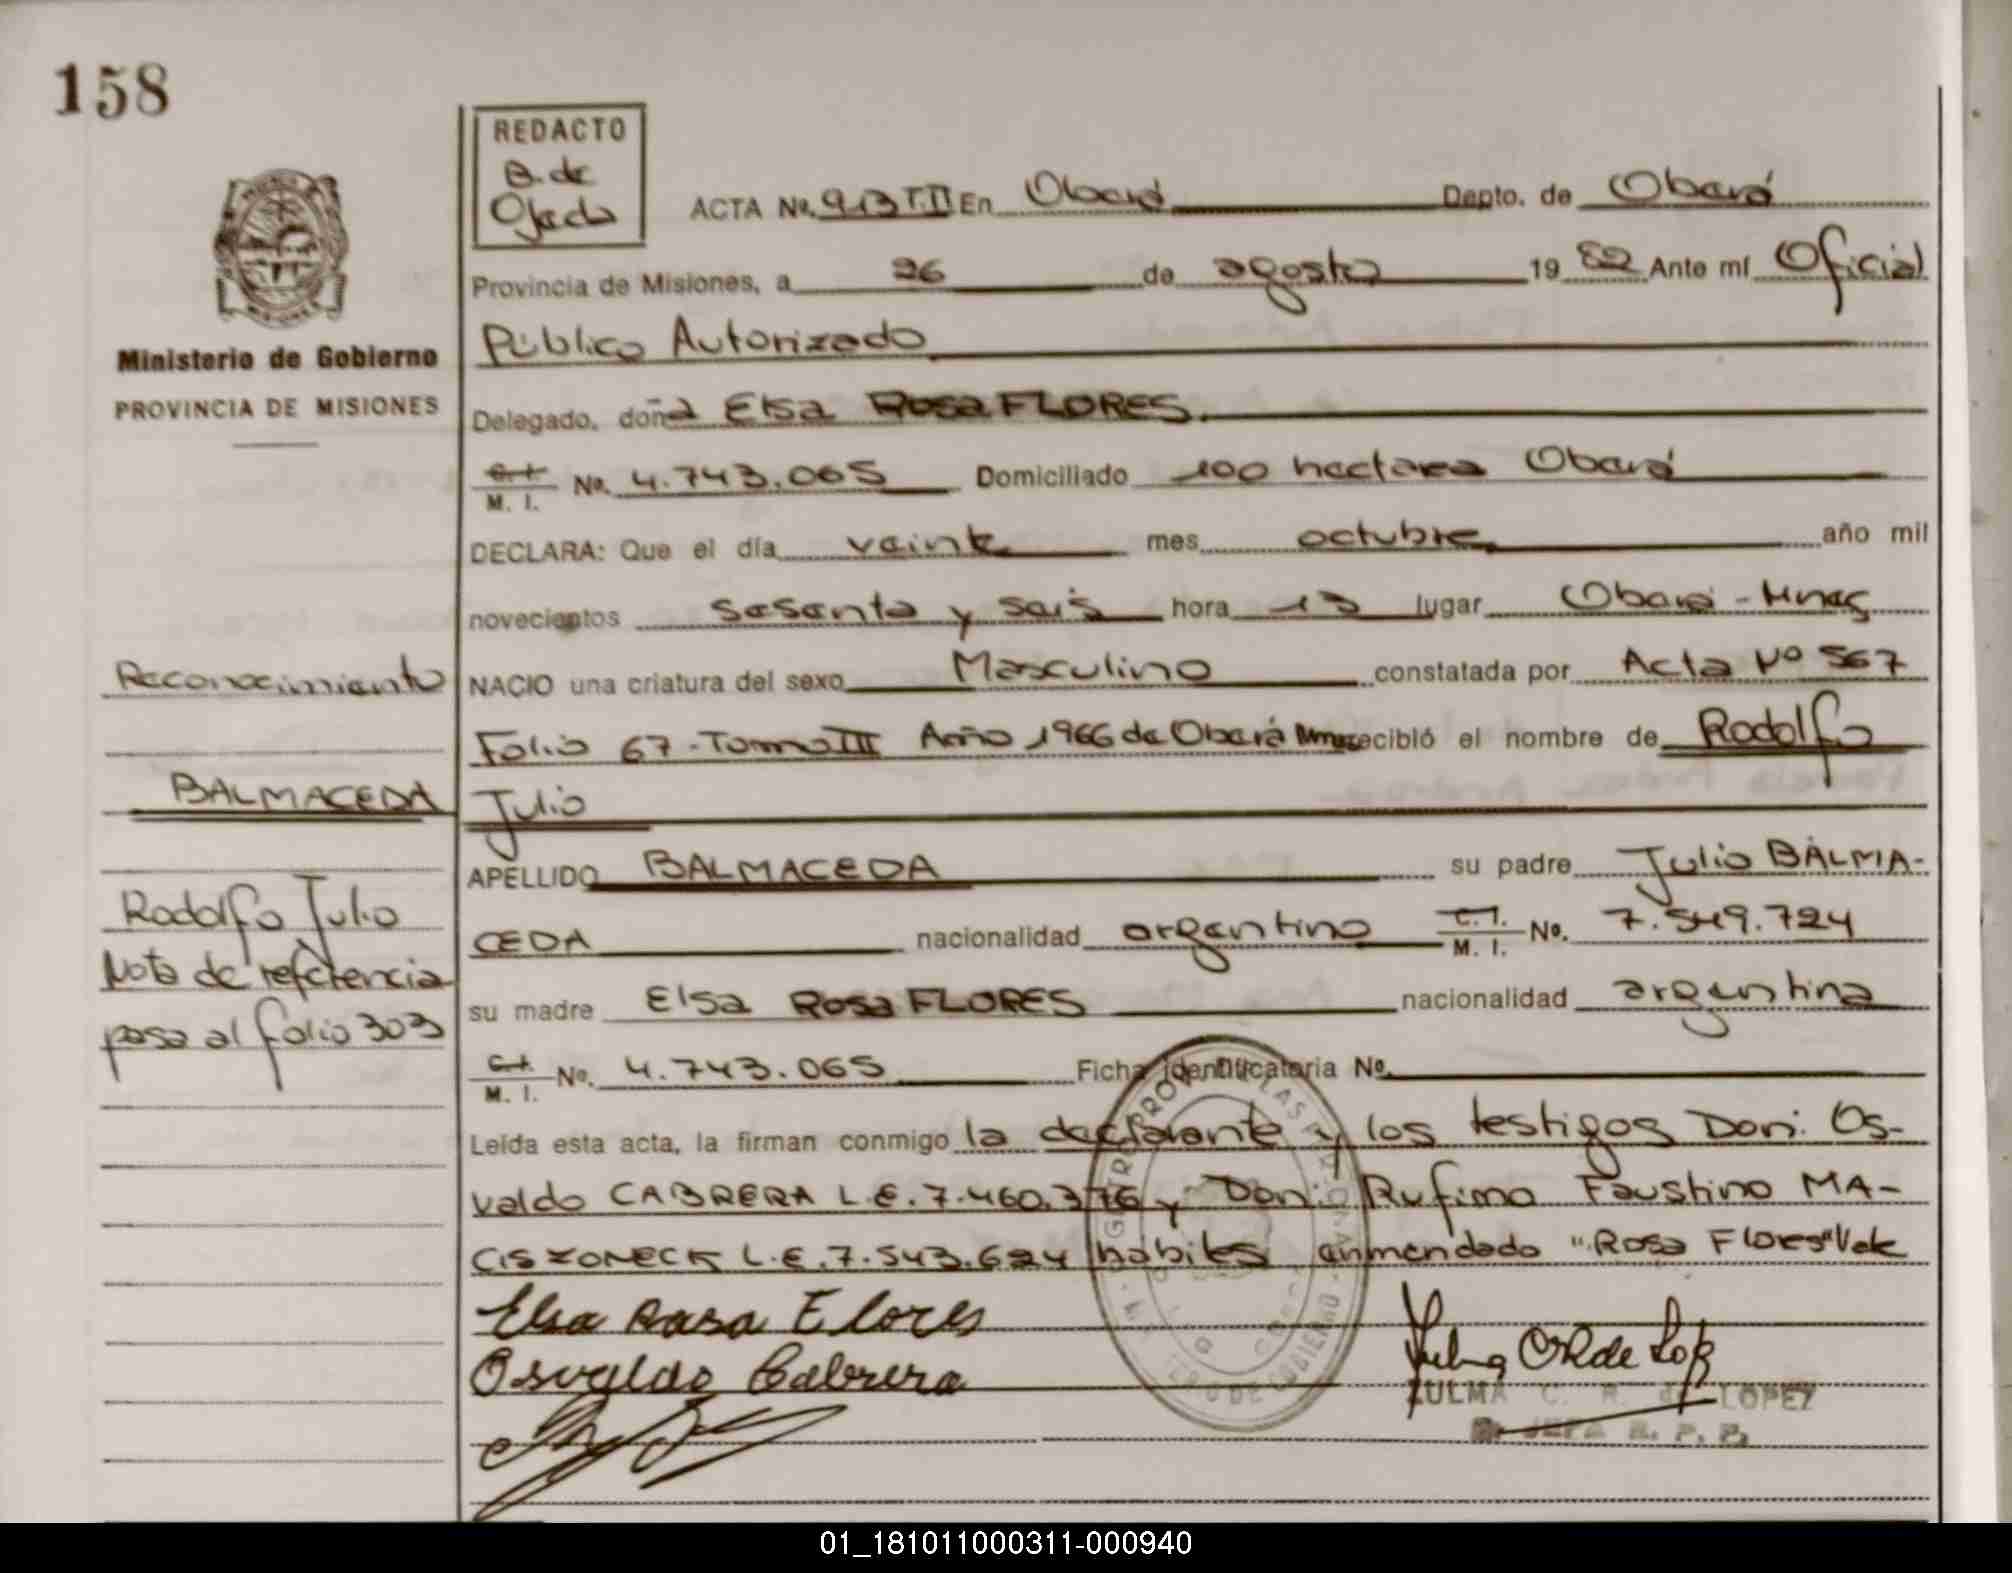 158
REDACTO
B. de
Ojeda
ACTA No. 913 T.II En Oberá Depto. de Oberá
Provincia de Misiones, a 26 de agosto 19 82 Ante mí Oficial
Público Autorizado
Delegado, doña Elsa Rosa FLORES.
M. I. No. 4.743.065 Domiciliado 100 hectarea Oberá
DECLARA: Que el día veinte mes octubre año mil
novecientos sesenta y seis hora 13 lugar Oberá - Mnes
NACIO una criatura del sexo Masculino constatada por Acta Nº 567
Folio 67 - Tomo III Año 1966 de Oberá Mnes recibió el nombre de Rodolfo
Julio
APELLIDO BALMACEDA su padre Julio BALMA-
CEDA nacionalidad argentino C. I. M. I. No. 7.549.724
su madre Elsa Rosa FLORES nacionalidad argentina
M. I. No. 4.743.065 Ficha identificatoria No.
Leída esta acta, la firman conmigo la declarante y los testigos Don: Os-
valdo CABRERA L.E. 7.460.376 y Don: Rufino Faustino MA-
CISZONECK L.E. 7.543.624 hábiles enmendado "Rosa Flores" Vale
Elsa Rosa Flores
Osvaldo Cabrera
ZULMA C. R. de LOPEZ
JEFA R. P. P.
Ministerio de Gobierno
PROVINCIA DE MISIONES
Reconocimiento
BALMACEDA
Rodolfo Julio
Nota de referencia
pasa al folio 303
01_181011000311-000940